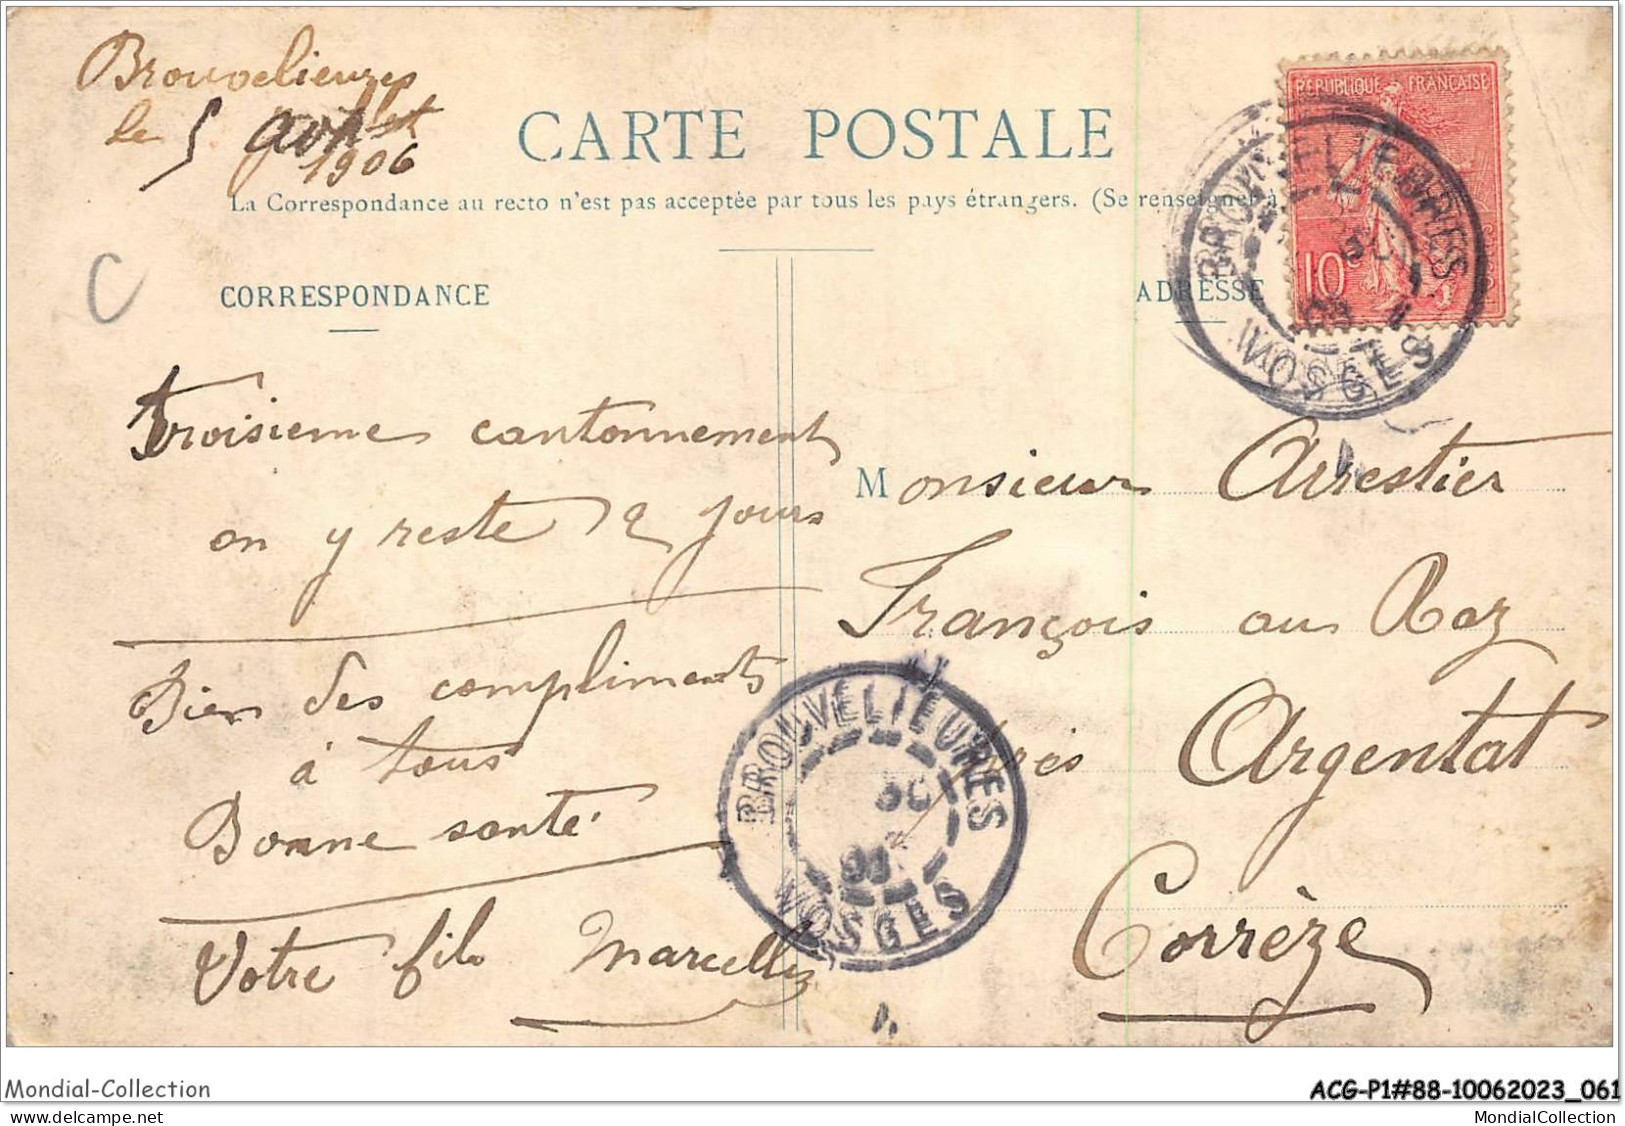 Brouvelieures
le 5 août
1906
CARTE POSTALE
La Correspondance au recto n'est pas acceptée par tous les pays étrangers. (Se renseigner à
RÉPUBLIQUE FRANÇAISE
10c
BROUVELIEURES
VOSGES
C
CORRESPONDANCE
ADRESSE
Troisieme cantonnement
on y reste 2 jours
Bien des compliments
à tous
Bonne santé
Votre fils Marcelly
Monsieur Arrestier
François au Roz
près Argentat
Corrèze
BROUVELIEURES
30
06
VOSGES
Mondial-Collection
ACG-P1#88-10062023_061
MondialCollection